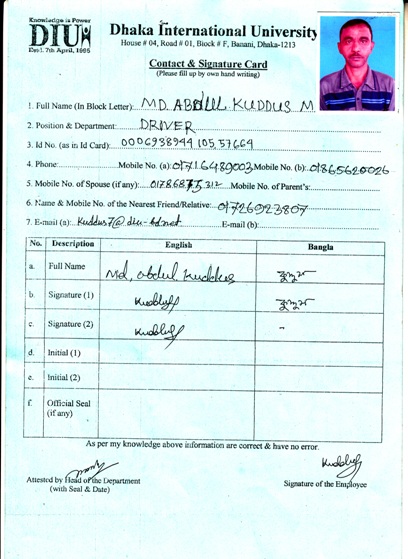 Knowledge is Power
DIU
Est. 7th April, 1995
Dhaka International University
House # 04, Road # 01, Block # F, Banani, Dhaka-1213
Contact & Signature Card
(Please fill up by own hand writing)
1. Full Name (In Block Letter): MD. ABDUL KUDDUS M
2. Position & Department: DRIVER
3. Id No. (as in Id Card): 0006938944 105,57664
4. Phone: Mobile No. (a): 01716489003 Mobile No. (b): 01865620026
5. Mobile No. of Spouse (if any): 01786875312 Mobile No. of Parent's:
6. Name & Mobile No. of the Nearest Friend/Relative: 01726923807
7. E-mail (a): Kuddus7@diu-bd.net E-mail (b):
No. Description English Bangla
a. Full Name Md. abdul kuddus
b. Signature (1)
c. Signature (2)
d. Initial (1)
e. Initial (2)
f. Official Seal
(if any)
As per my knowledge above information are correct & have no error.
Attested by Head of the Department
(with Seal & Date)
Signature of the Employee